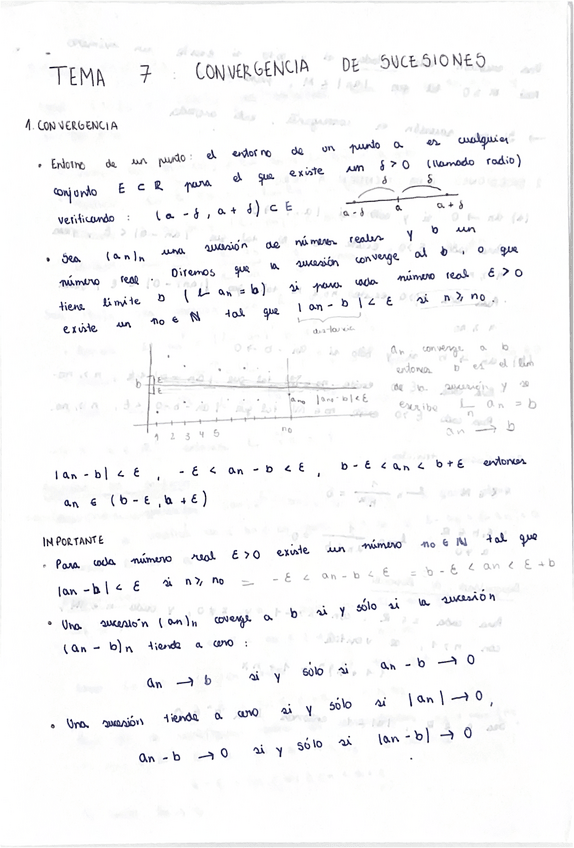 TEMA 7: CONVERGENCIA DE SUCESIONES
1. CONVERGENCIA
• Entorno de un punto: el entorno de un punto a es cualquier
conjunto E ⊂ R para el que existe un δ > 0 (llamado radio)
verificando: (a - δ, a + δ) ⊂ E
δ δ
a - δ a a + δ
• Sea (an)n una sucesión de números reales y b un
número real. Diremos que la sucesión converge al b, o que
tiene límite b (L an = b) si para cada número real ε > 0
existe un no ∈ N tal que |an - b| < ε si n ≥ no.
distancia
b ε
ε
ano |an - b| < ε
1 2 3 4 5 no
an converge a b
entonces b es el lím
de la sucesión y se
escribe L an = b
n
an → b
|an - b| < ε, -ε < an - b < ε, b - ε < an < b + ε entonces
an ∈ (b - ε, b + ε)
IMPORTANTE
• Para cada número real ε > 0 existe un número no ∈ N tal que
|an - b| < ε si n ≥ no = -ε < an - b < ε = b - ε < an < ε + b
• Una sucesión (an)n coverge a b si y sólo si la sucesión
(an - b)n tiende a cero:
an → b si y sólo si an - b → 0
• Una sucesión tiende a cero si y sólo si |an| → 0,
an - b → 0 si y sólo si |an - b| → 0